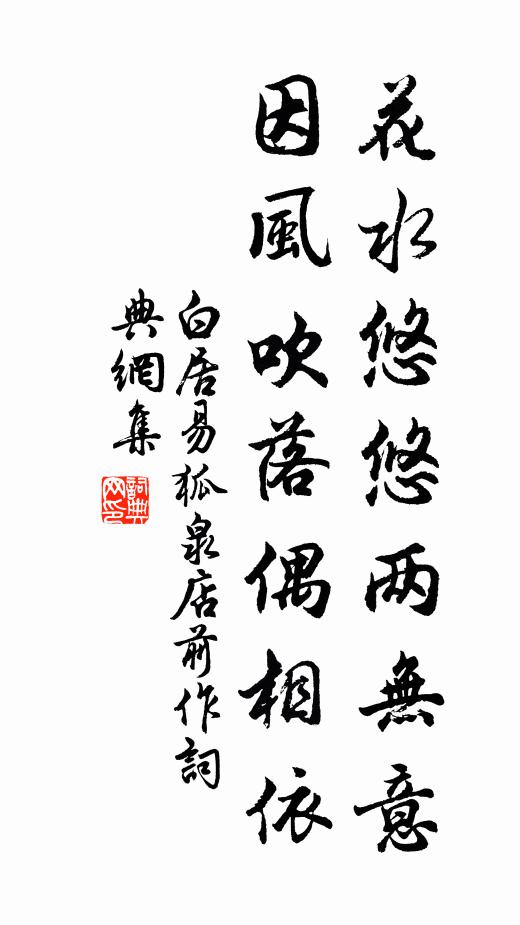 花水悠悠两無意
因風吹落偶相依
白居易狐泉店前作詞
典網集
詞典网印